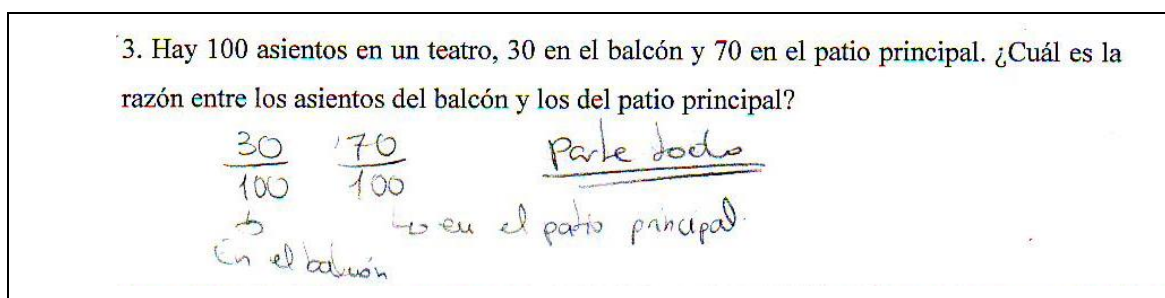 3. Hay 100 asientos en un teatro, 30 en el balcón y 70 en el patio principal. ¿Cuál es la
razón entre los asientos del balcón y los del patio principal?
30/100 70/100 Parte todo
↳ en el patio principal.
En el balcón